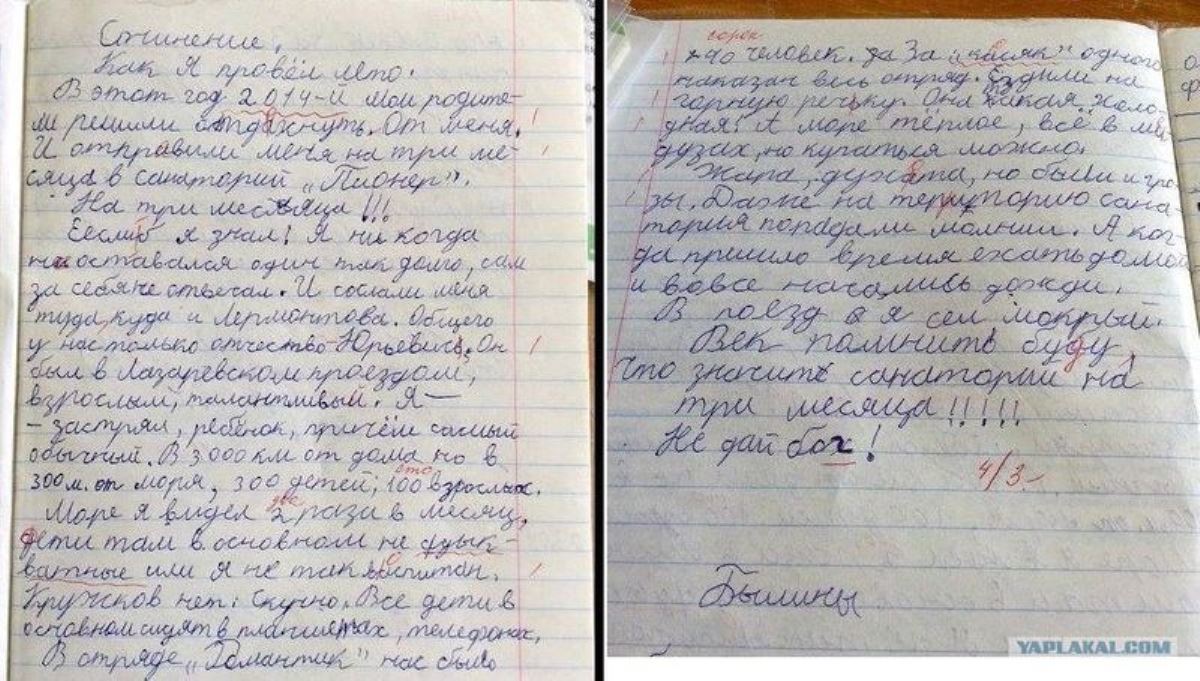 Сочинение.
Как я провёл лето.
В этот год 2014-й мои родите-
ли решили отдахнуть. От меня.
И отправили меня на три ме-
сяца в санаторий „Пионер".
На три месяца!!!
Еслиб я знал! Я ни когда
не оставался один так долго, сам
за себя не отвечал. И сослали меня
туда, куда и Лермонтова. Общего
у нас только отчество - Юрьевич. Он
был в Лазаревском проездом,
взрослым, талантливый. Я —
- застрял, ребёнок, причём самый
обычный. В 3000 км от дома но в
сто
300 м. от моря, 300 детей, 100 взрослых.
две
Море я видел 2 раза в месяц,
дети там в основном не адык-
ватные или я не так воспитан.
Кружков нет. Скучно. Все дети в
основном сидят в планшетах, телефонах.
В отряде „Романтик" нас было
сорок
40 человек. За „касяк" одного
наказан весь отряд. Ездили на
горную речьку. Она такая холо-
дная! А море тёплое, всё в ме
дузах, но купаться можно.
Жара, духота, но были и гро-
зы. Даже на территорию сана-
тория попадали молнии. А ког-
да пришло время ехать домой
и вовсе начались дожди.
В поезд я сел мокрый.
Век помнить буду,
Что значить санаторий на
три месяца!!!!!
Не дай бох!
4/3-
Былины
YAPLAKAL.COM